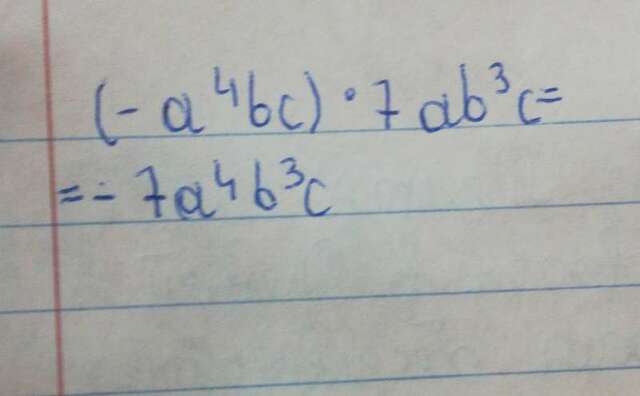 (-a⁴bc)·7ab³c=
=-7a⁴b³c